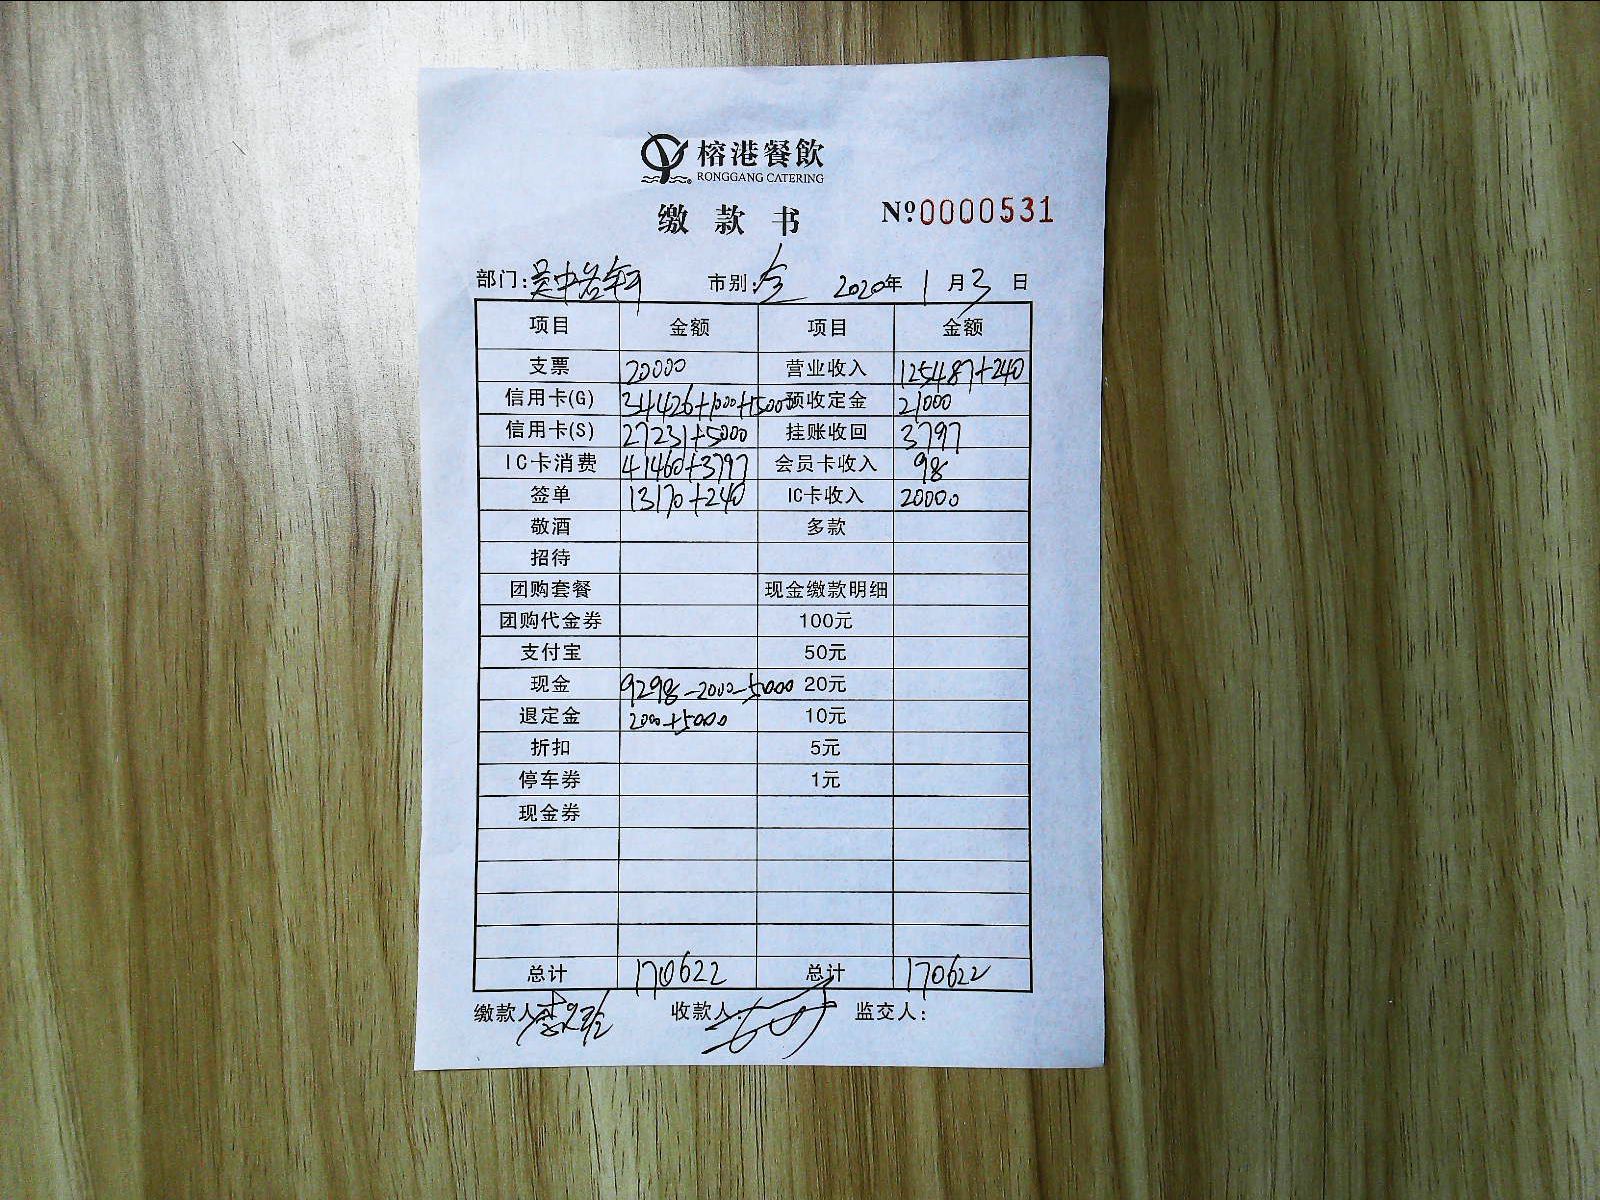 榕港餐飲
RONGGANG CATERING
缴款书 Nº0000531
部门: 吴中 市别: 全 2020年 1月3日
项目 金额 项目 金额
支票 20000 营业收入 125487+240
信用卡(G) 34426+1000+15000 预收定金 21000
信用卡(S) 27231+5000 挂账收回 3797
IC卡消费 41460+3797 会员卡收入 98
签单 13170+240 IC卡收入 20000
敬酒 多款
招待
团购套餐 现金缴款明细
团购代金券 100元
支付宝 50元
现金 9298-2000-5000 20元
退定金 2000+5000 10元
折扣 5元
停车券 1元
现金券
总计 170622 总计 170622
缴款人: 收款人: 监交人: